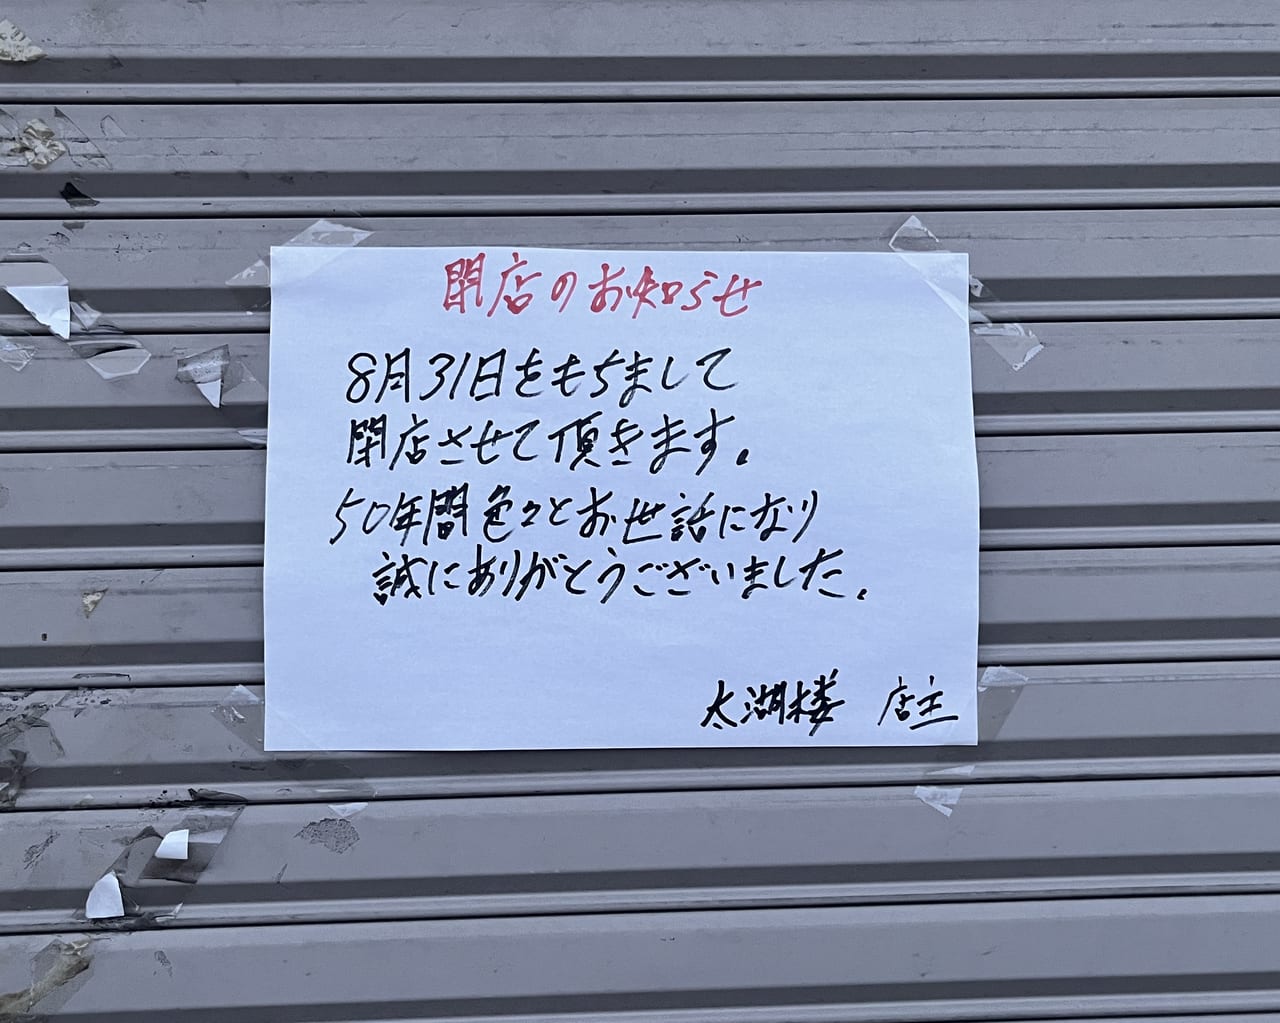 閉店のお知らせ
8月31日をもちまして
閉店させて頂きます。
50年間色々とお世話になり
誠にありがとうございました。
太湖楼 店主